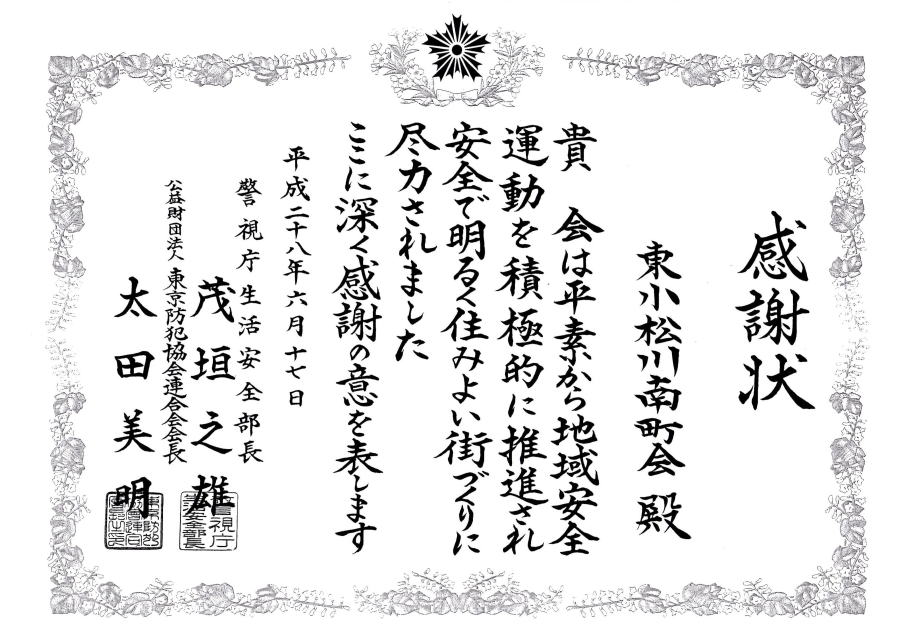 感謝状
東小松川南町会 殿
貴 会は平素から地域安全
運動を積極的に推進され
安全で明るく住みよい街づくりに
尽力されました
ここに深く感謝の意を表します
平成二十八年六月十七日
警視庁生活安全部長
茂垣之雄
公益財団法人 東京防犯協会連合会会長
太田美明